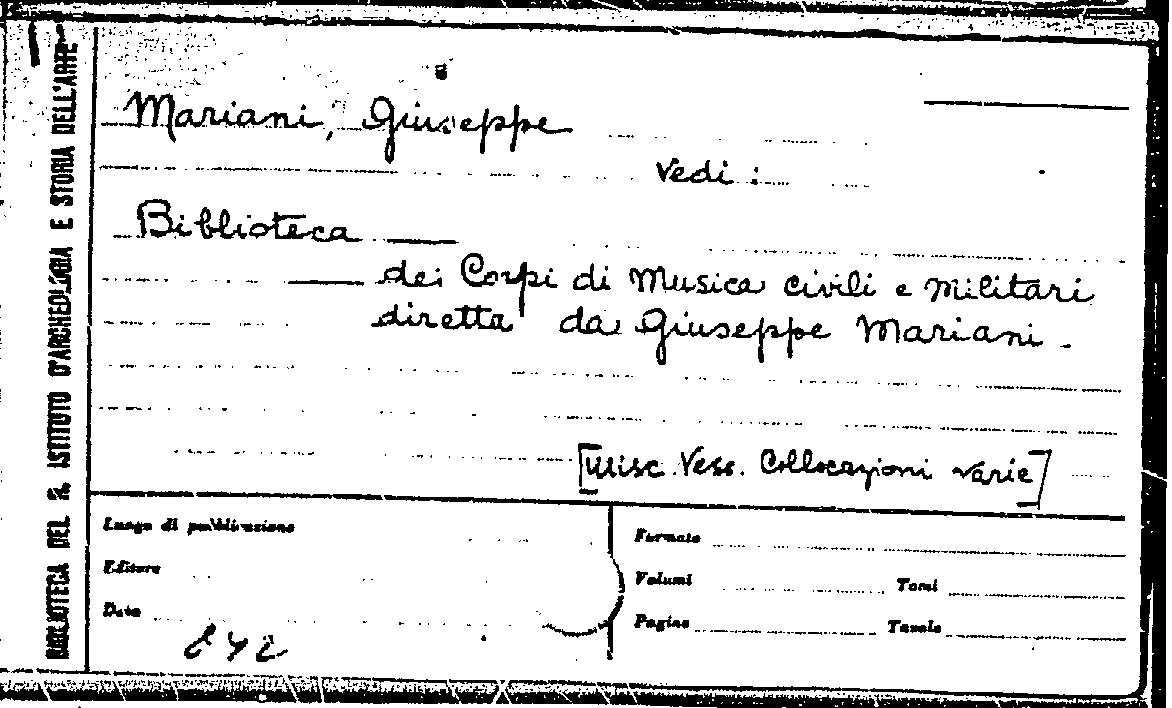 BIBLIOTECA DEL R. ISTITUTO D'ARCHEOLOGIA E STORIA DELL'ARTE
Mariani, Giuseppe
vedi :
Biblioteca
dei Corpi di Musica civili e militari
diretta da Giuseppe Mariani.
[Misc. Vess. Collocazioni varie]
Luogo di pubblicazione
Editore
Data
Formato
Volumi Tomi
Pagine Tavole
242